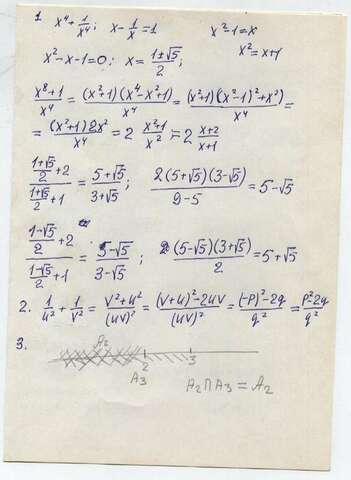 1 x⁴ + 1/x⁴; x - 1/x = 1 x² - 1 = x
x² - x - 1 = 0; x = (1±√5)/2; x² = x+1
(x⁸+1)/x⁴ = (x²+1)(x⁴-x²+1)/x⁴ = (x²+1)((x²-1)²+x²)/x⁴ =
= (x²+1)2x²/x⁴ = 2 (x²+1)/x² = 2 (x+2)/(x+1)
((1+√5)/2+2)/((1+√5)/2+1) = (5+√5)/(3+√5); 2(5+√5)(3-√5)/(9-5) = 5-√5
((1-√5)/2+2)/((1-√5)/2+1) = (5-√5)/(3-√5); 2(5-√5)(3+√5)/2 = 5+√5
2. 1/u² + 1/v² = (v²+u²)/(uv)² = ((v+u)²-2uv)/(uv)² = ((-p)²-2q)/q² = (p²-2q)/q²
3.
A₂
2 3
A₃
A₂∩A₃ = A₂